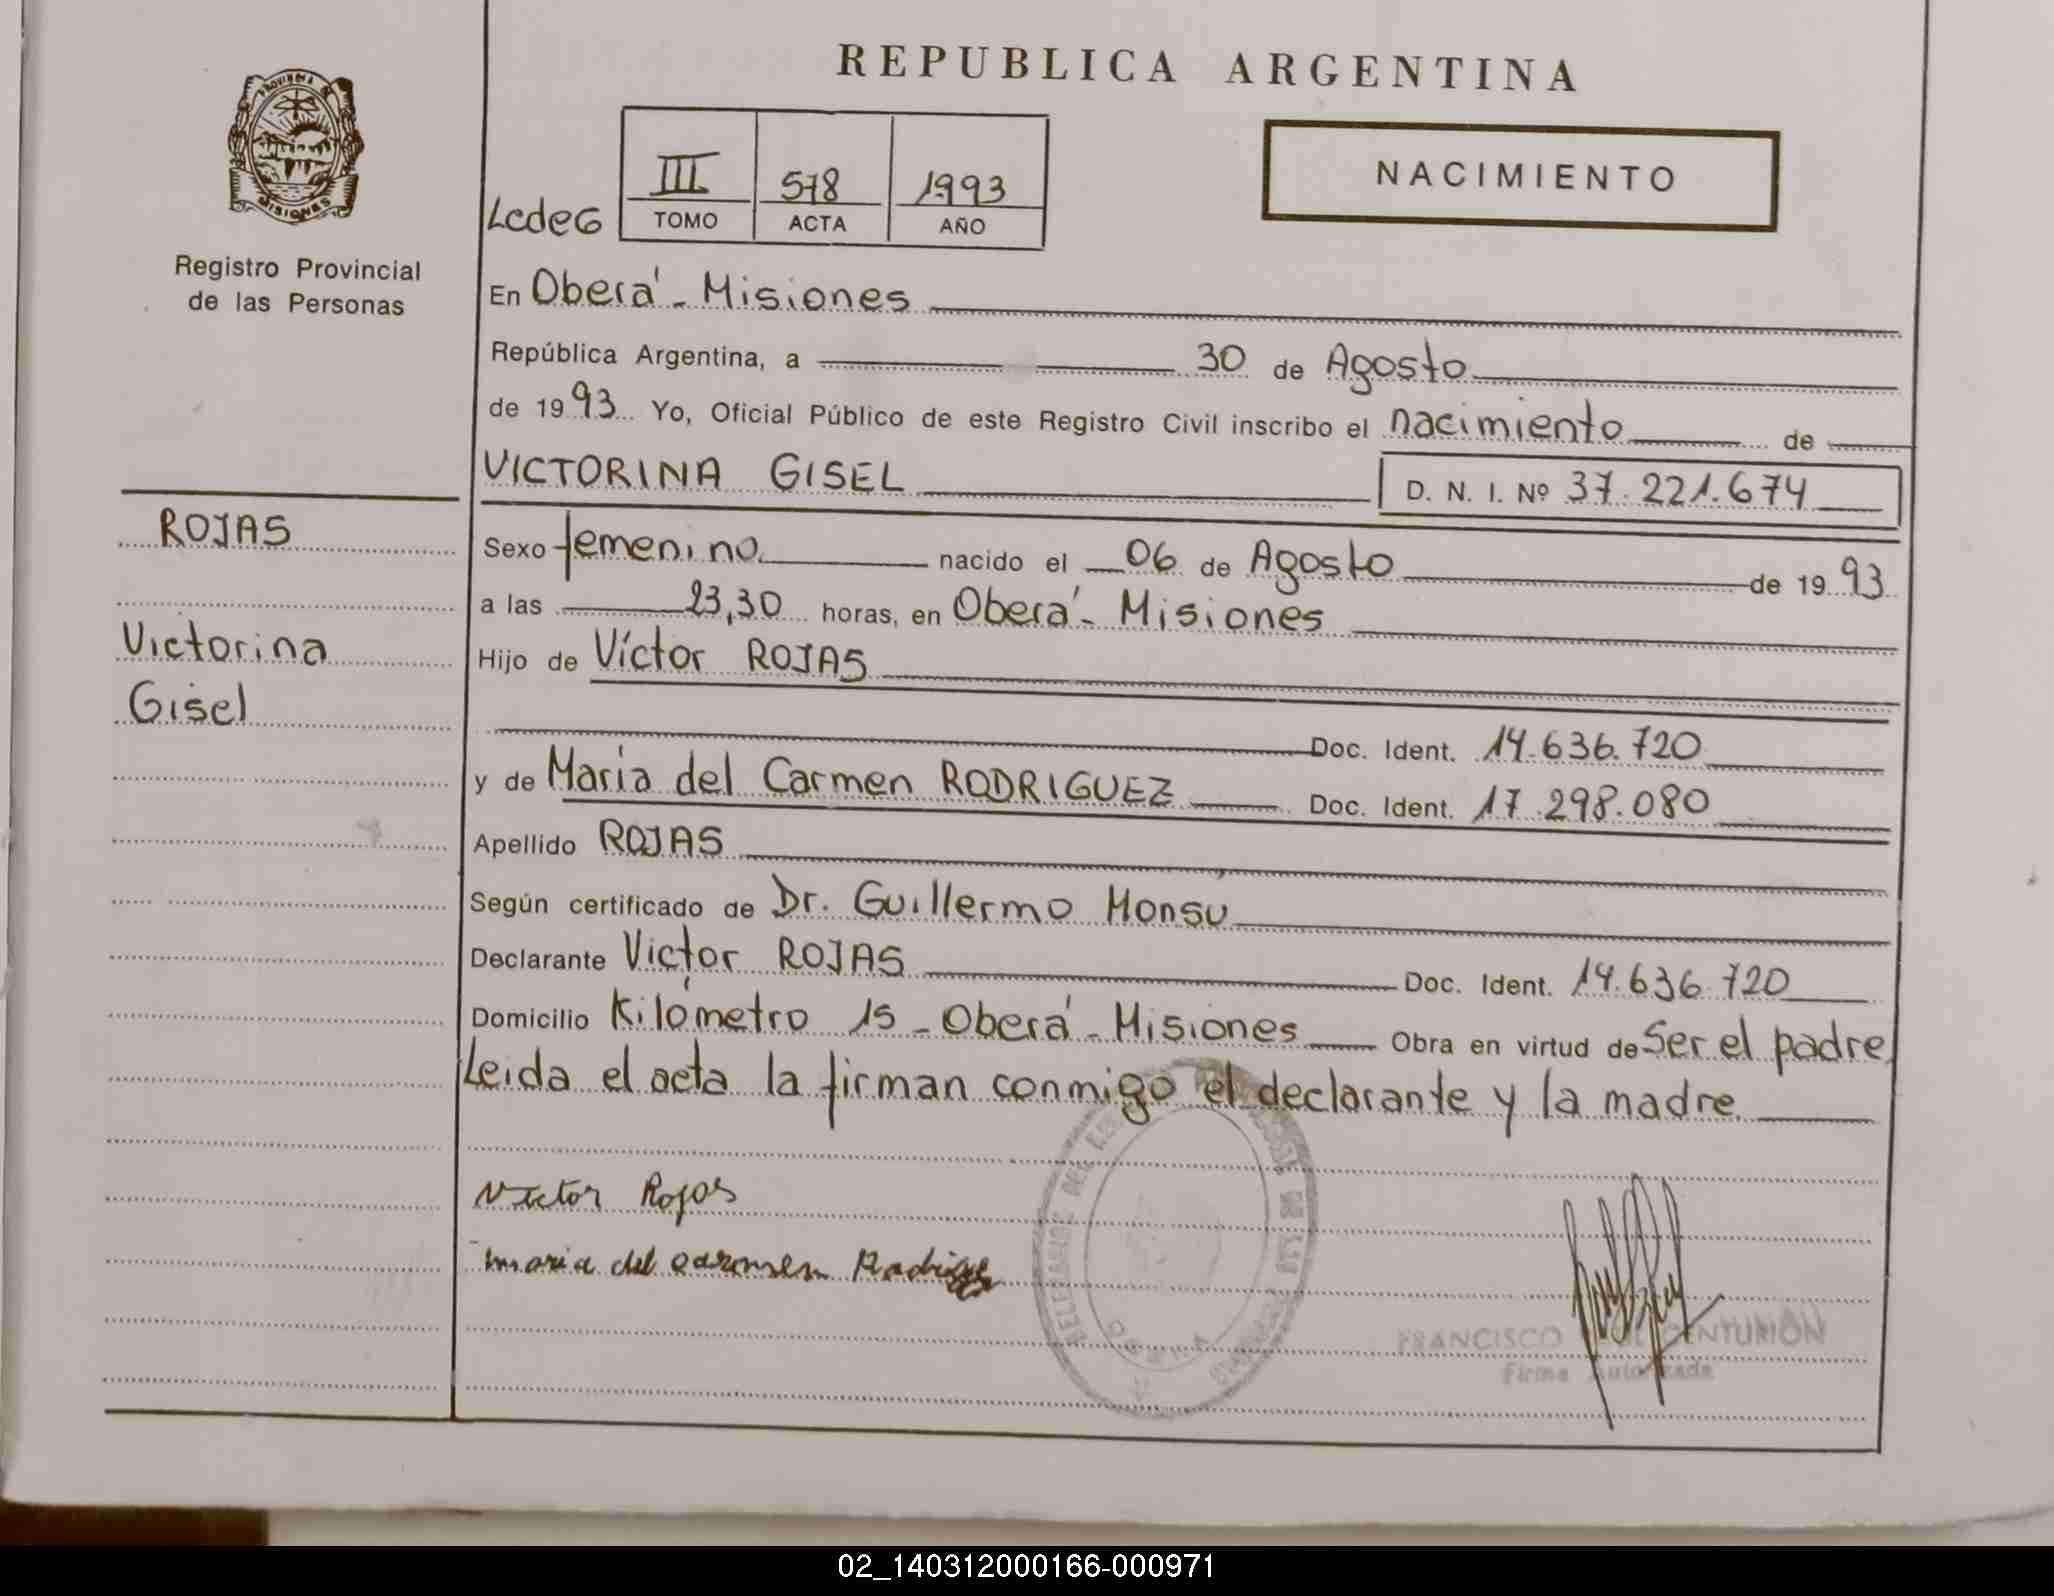 REPUBLICA ARGENTINA
PROVINCIA DE
MISIONES
Registro Provincial
de las Personas
LcdeG
III 578 1993
TOMO ACTA AÑO
NACIMIENTO
En Oberá - Misiones
República Argentina, a 30 de Agosto
de 1993 Yo, Oficial Público de este Registro Civil inscribo el nacimiento de
VICTORINA GISEL D. N. I. Nº 37.221.674
ROJAS
Victorina
Gisel
Sexo femenino nacido el 06 de Agosto de 1993
a las 23,30 horas, en Oberá - Misiones
Hijo de Víctor ROJAS
Doc. Ident. 14.636.720
y de María del Carmen RODRIGUEZ Doc. Ident. 17.298.080
Apellido ROJAS
Según certificado de Dr. Guillermo Monsu
Declarante Víctor ROJAS Doc. Ident. 14.636.720
Domicilio Kilómetro 15 - Oberá - Misiones Obra en virtud de Ser el padre
Leida el acta la firman conmigo el declarante y la madre
Victor Rojas
maria del carmen Rodriguez
DELEGACION DEL DE LAS
OBERA
FRANCISCO CENTURION
Firma Autorizada
02_140312000166-000971